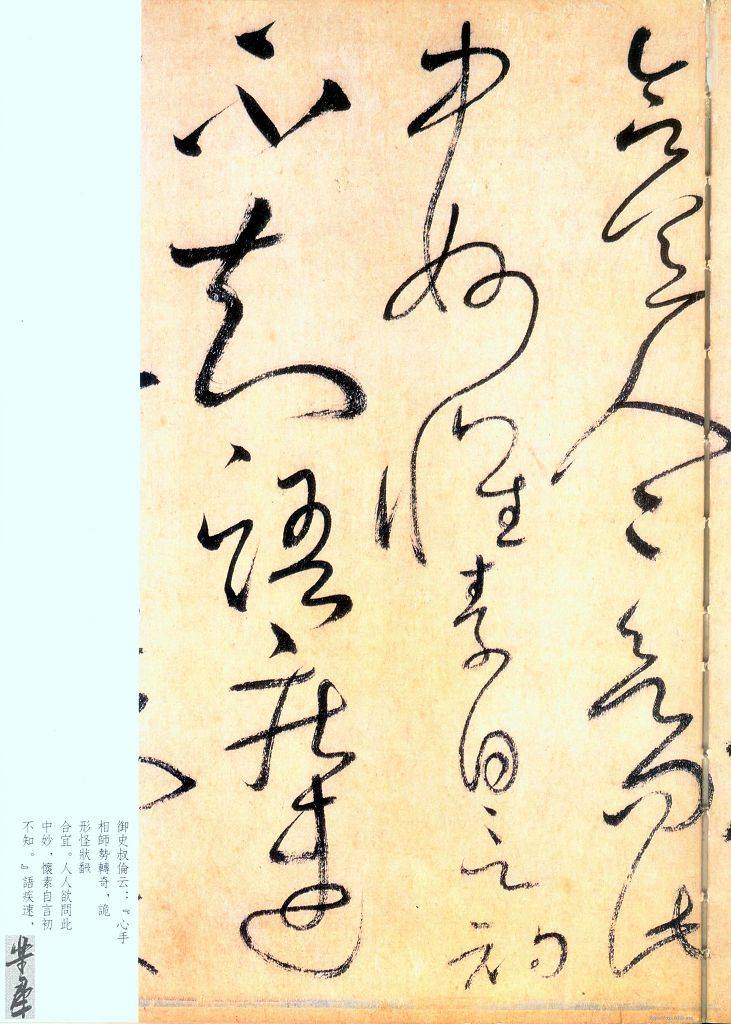 合宜人人欲問此
中妙懷素自言初
不知語疾速
御史叔倫云：『心手
相師勢轉奇，詭
形怪狀翻
合宜。人人欲問此
中妙，懷素自言初
不知。』語疾速，